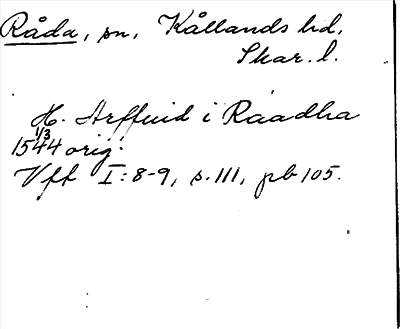 Råda, sn, Kållands hd,
Skar. l.
H. Arffuid i Raadha
1/3
1544 orig.
Vff I:8-9, s. 111, pb 105.